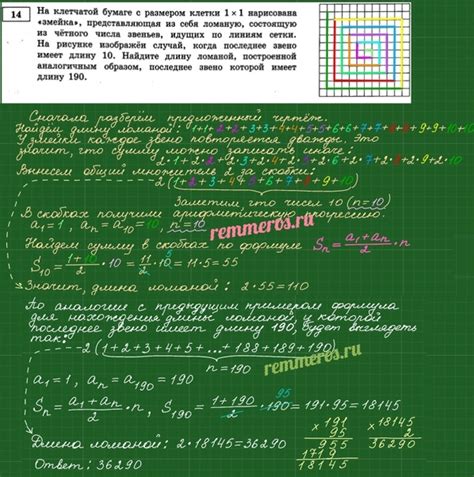 14
На клетчатой бумаге с размером клетки 1×1 нарисована
«змейка», представляющая из себя ломаную, состоящую
из чётного числа звеньев, идущих по линиям сетки.
На рисунке изображён случай, когда последнее звено
имеет длину 10. Найдите длину ломаной, построенной
аналогичным образом, последнее звено которой имеет
длину 190.
Сначала разберём предложенный чертёж.
Найдём длину ломаной: 1+1+2+2+3+3+4+4+5+5+6+6+7+7+8+8+9+9+10+10
У змейки каждое звено повторяется дважды. Это
значит, что сумму можно записать иначе:
2·1+2·2+2·3+2·4+2·5+2·6+2·7+2·8+2·9+2·10
Вынесем общий множитель 2 за скобки:
2(1+2+3+4+5+6+7+8+9+10)
Заметим, что чисел 10 (n=10)
В скобках получили арифметическую прогрессию.
a₁=1, aₙ=a₁₀=10, n=10
remmeros.ru
Найдем сумму в скобках по формуле Sₙ = (a₁+aₙ)/2 · n
S₁₀ = (1+10)/2 · 10 = 11/2 · 10 5 = 11·5 = 55
Значит, длина ломаной: 2·55=110
По аналогии с предыдущим примером формула
для нахождения длины ломаной, у которой
последнее звено имеет длину 190, будет выглядеть
так:
2(1+2+3+4+5+...+188+189+190)
n=190
remmeros.ru
a₁=1, aₙ=a₁₉₀=190
Sₙ = (a₁+aₙ)/2 · n, S₁₉₀ = (1+190)/2 · 190 95 = 191·95 = 18145
Длина ломаной: 2·18145=36290
Ответ: 36290
× 191
95
955
1719
18145
× 18145
2
36290